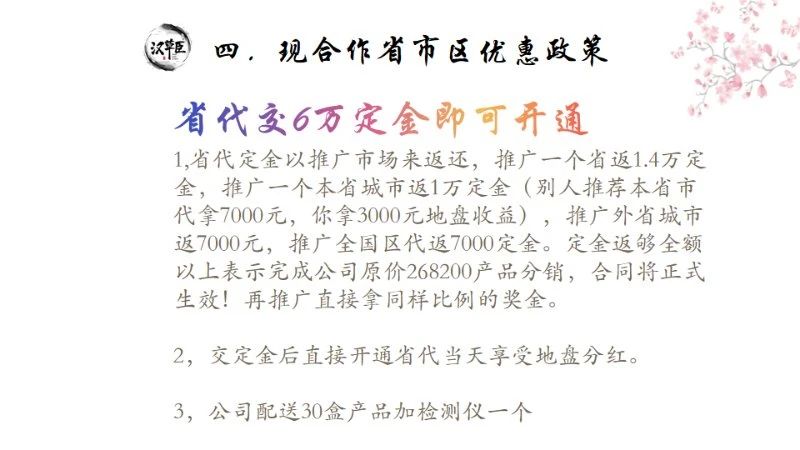 汉草医
四．现合作省市区优惠政策
省代交6万定金即可开通
1,省代定金以推广市场来返还，推广一个省返1.4万定
金，推广一个本省城市返1万定金（别人推荐本省市
代拿7000元，你拿3000元地盘收益），推广外省城市
返7000元，推广全国区代返7000定金。定金返够全额
以上表示完成公司原价268200产品分销，合同将正式
生效！再推广直接拿同样比例的奖金。
2，交定金后直接开通省代当天享受地盘分红。
3，公司配送30盒产品加检测仪一个